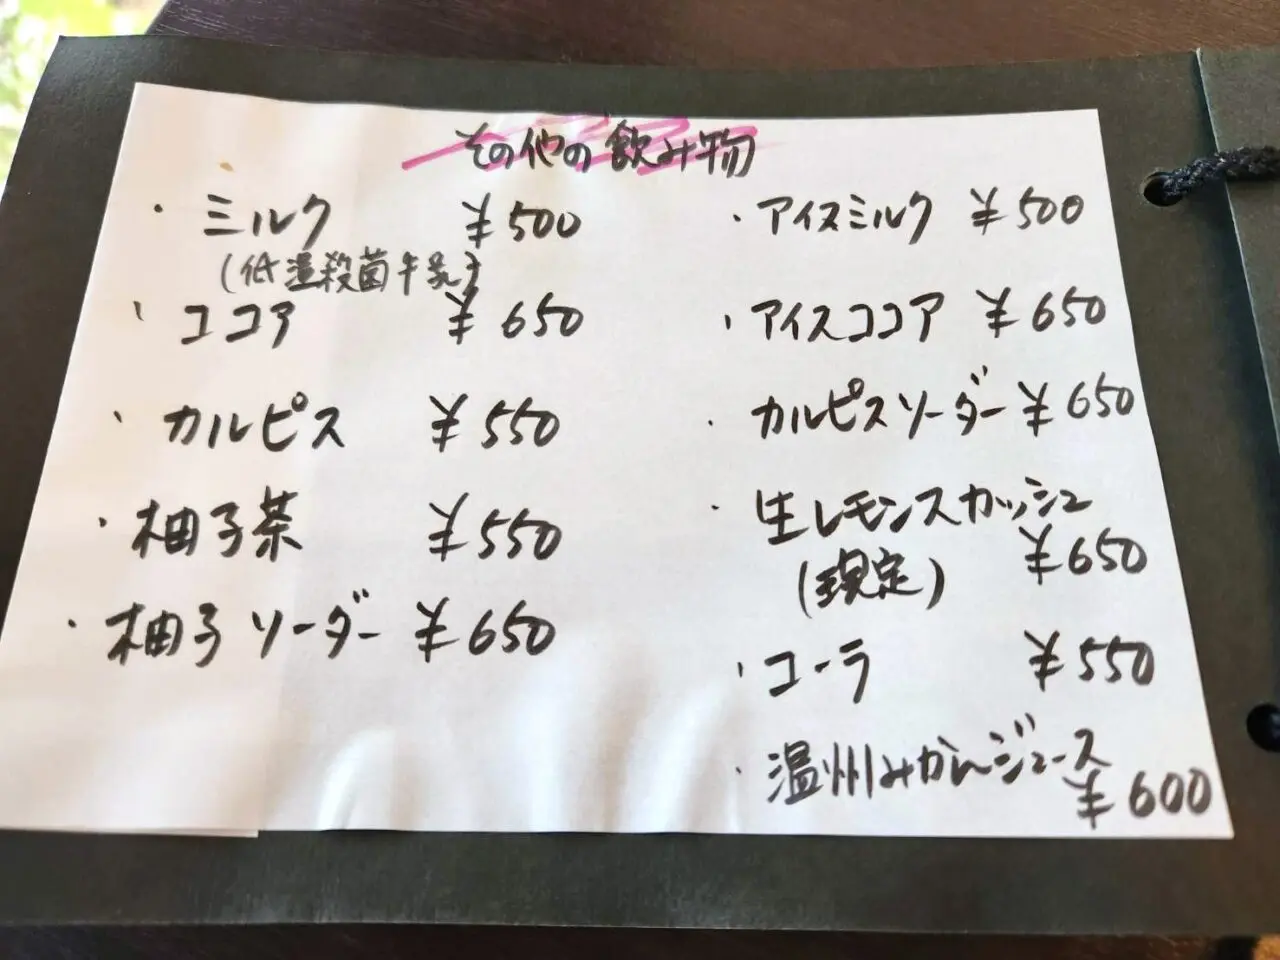 その他の飲み物
・ミルク ¥500
(低温殺菌牛乳)
・ココア ¥650
・カルピス ¥550
・柚子茶 ¥550
・柚子ソーダー ¥650
・アイスミルク ¥500
・アイスココア ¥650
・カルピスソーダー ¥650
・生レモンスカッシュ
¥650
(限定)
・コーラ ¥550
・温州みかんジュース
¥600